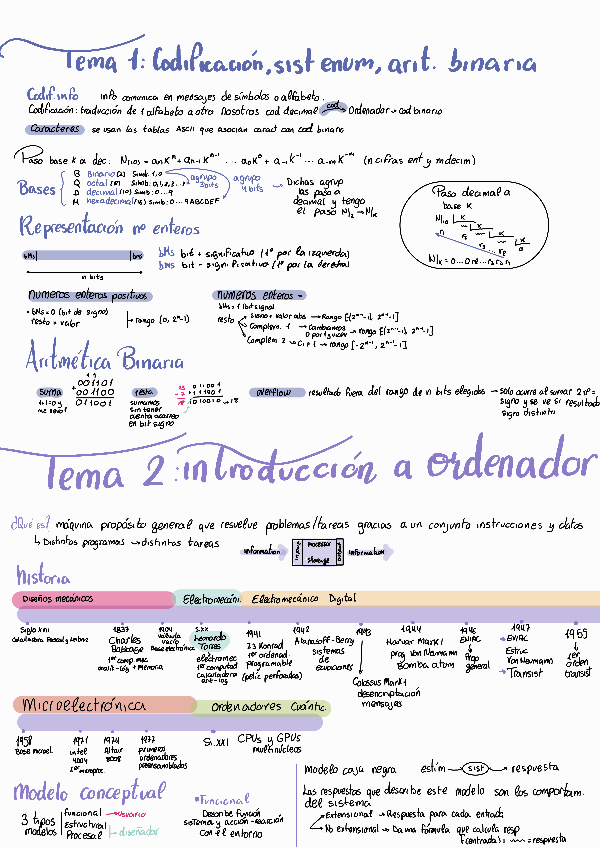 Tema 1: Codificación, sist enum, arit. binaria
Codif. info info comunica en mensajes de símbolos o alfabeto.
Codificación: traducción de 1 alfabeto a otro Nosotros cod decimal cod Ordenador → cod binario
Caracteres se usan las tablas ASCII que asocian caract con cod binario
Paso base K a dec: N(10 = anK^n + an-1 K^n-1 ... a0K^0 + a-1K^-1 ... a-mK^-m (n cifras ent y m decim)
Bases
B Binario (2) Simb: 1,0
O octal (8) Simb: 0,1,2,3...7
D decimal (10) Simb: 0...9
H hexadecimal (16) Simb: 0...9ABCDEF
agrupo 3bits
agrupo 4 bits
→ Dichas agrup
las paso a
decimal y tengo
el paso N(2 → N(K
Paso decimal a
base K
N(10 K
K
K
K
Representación nº enteros
bMs
bms
n bits
bMs bit + significativo (1º por la izquierda)
bms bit - significativo (1º por la derecha)
numeros enteros positivos
• bMs = 0 (bit de signo)
resto = valor
→ rango [0, 2^n-1)
numeros enteros -
• bMs = 1 bit signo
resto
Signo + valor abs → Rango
Complem. 1 → Cambiamos
0 por 1 y vicev → rango
Complem 2 → C1 + 1 → rango [-2^n-1, 2^n-1]
Aritmética Binaria
suma
1+1=0 y
me llevo 1
001101
+001100
011001
resta
sumamos
sin tener
cuenta acarreo
en bit signo
overflow resultado fuera del rango de n bits elegidos → solo ocurre al sumar 2 nº =
signo y se ve si resultado
signo distinto
Tema 2: introducción a ordenador
¿Qué es? máquina propósito general que resuelve problemas/tareas gracias a un conjunto instrucciones y datos
↳ Distintos programas → distintas tareas
information
Input
Processor
Storage
Output
information
historia
Diseños mecánicos
Electromecáni.
Electromecánico Digital
Siglo XVII
1837
Charles
Babbage
1er comp mec
arit-lóg + memoria
1904
Válvula
vacío
Base electrónica
S.XX
Leonardo
Torres
electromec
1er computad
calculadora
arit-lóg
1941
Z3 Konrad
1er ordenad.
programable
(pelíc perforadas)
1942
Atanasoff-Berry
sistemas
de
ecuaciones
1943
Colossus Mark1
desencriptación
mensajes
1944
Harvar Mark1
prog Von Neumann
Bomba atom
1946
ENIAC
Prop
general
1947
→ EDVAC
Estruc
Von Neumann
→ Transist
1955
1er
orden
transist
Microelectrónica
Ordenadores Cuántic.
1958
Base microel.
1971
intel
4004
1er microproc.
1974
Altair
8008
1977
primeros
ordenadores
preensamblados
S.XXI CPUs y GPUs
multinúcleos
Modelo conceptual
3 tipos
modelos
funcional → usuario
Estructural
Procesal
diseñador
• Funcional
Describe función
sistema y acción-reacción
con el entorno
Modelo caja negra estím → sist → respuesta
Las respuestas que describe este modelo son los comportam.
del sistema
Extensional → Respuesta para cada entrada
No extensional → Da una fórmula que calcula resp
f(entrada) = respuesta